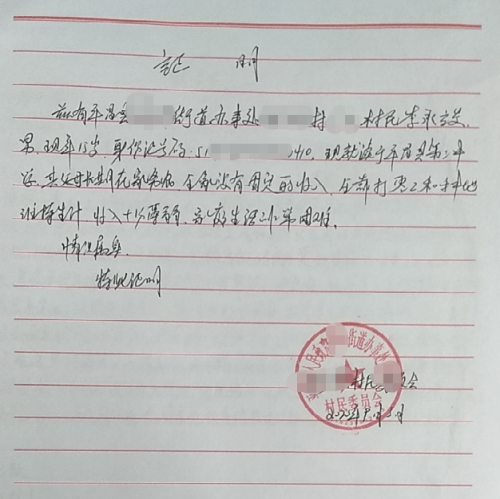 证 明
兹有平昌县 街道办事处 村 村民李
男，现年15岁 身份证号码：51 1410，现就读于平昌县第二中
学，其父母长期在家务农，全家没有固定的收入，全靠打零工和种地
维持生计 收入十分薄弱，家庭生活非常困难。
情况属实
特此证明
人民政府 街道办事处
村民 员会
村民委员会
2022年 月 日